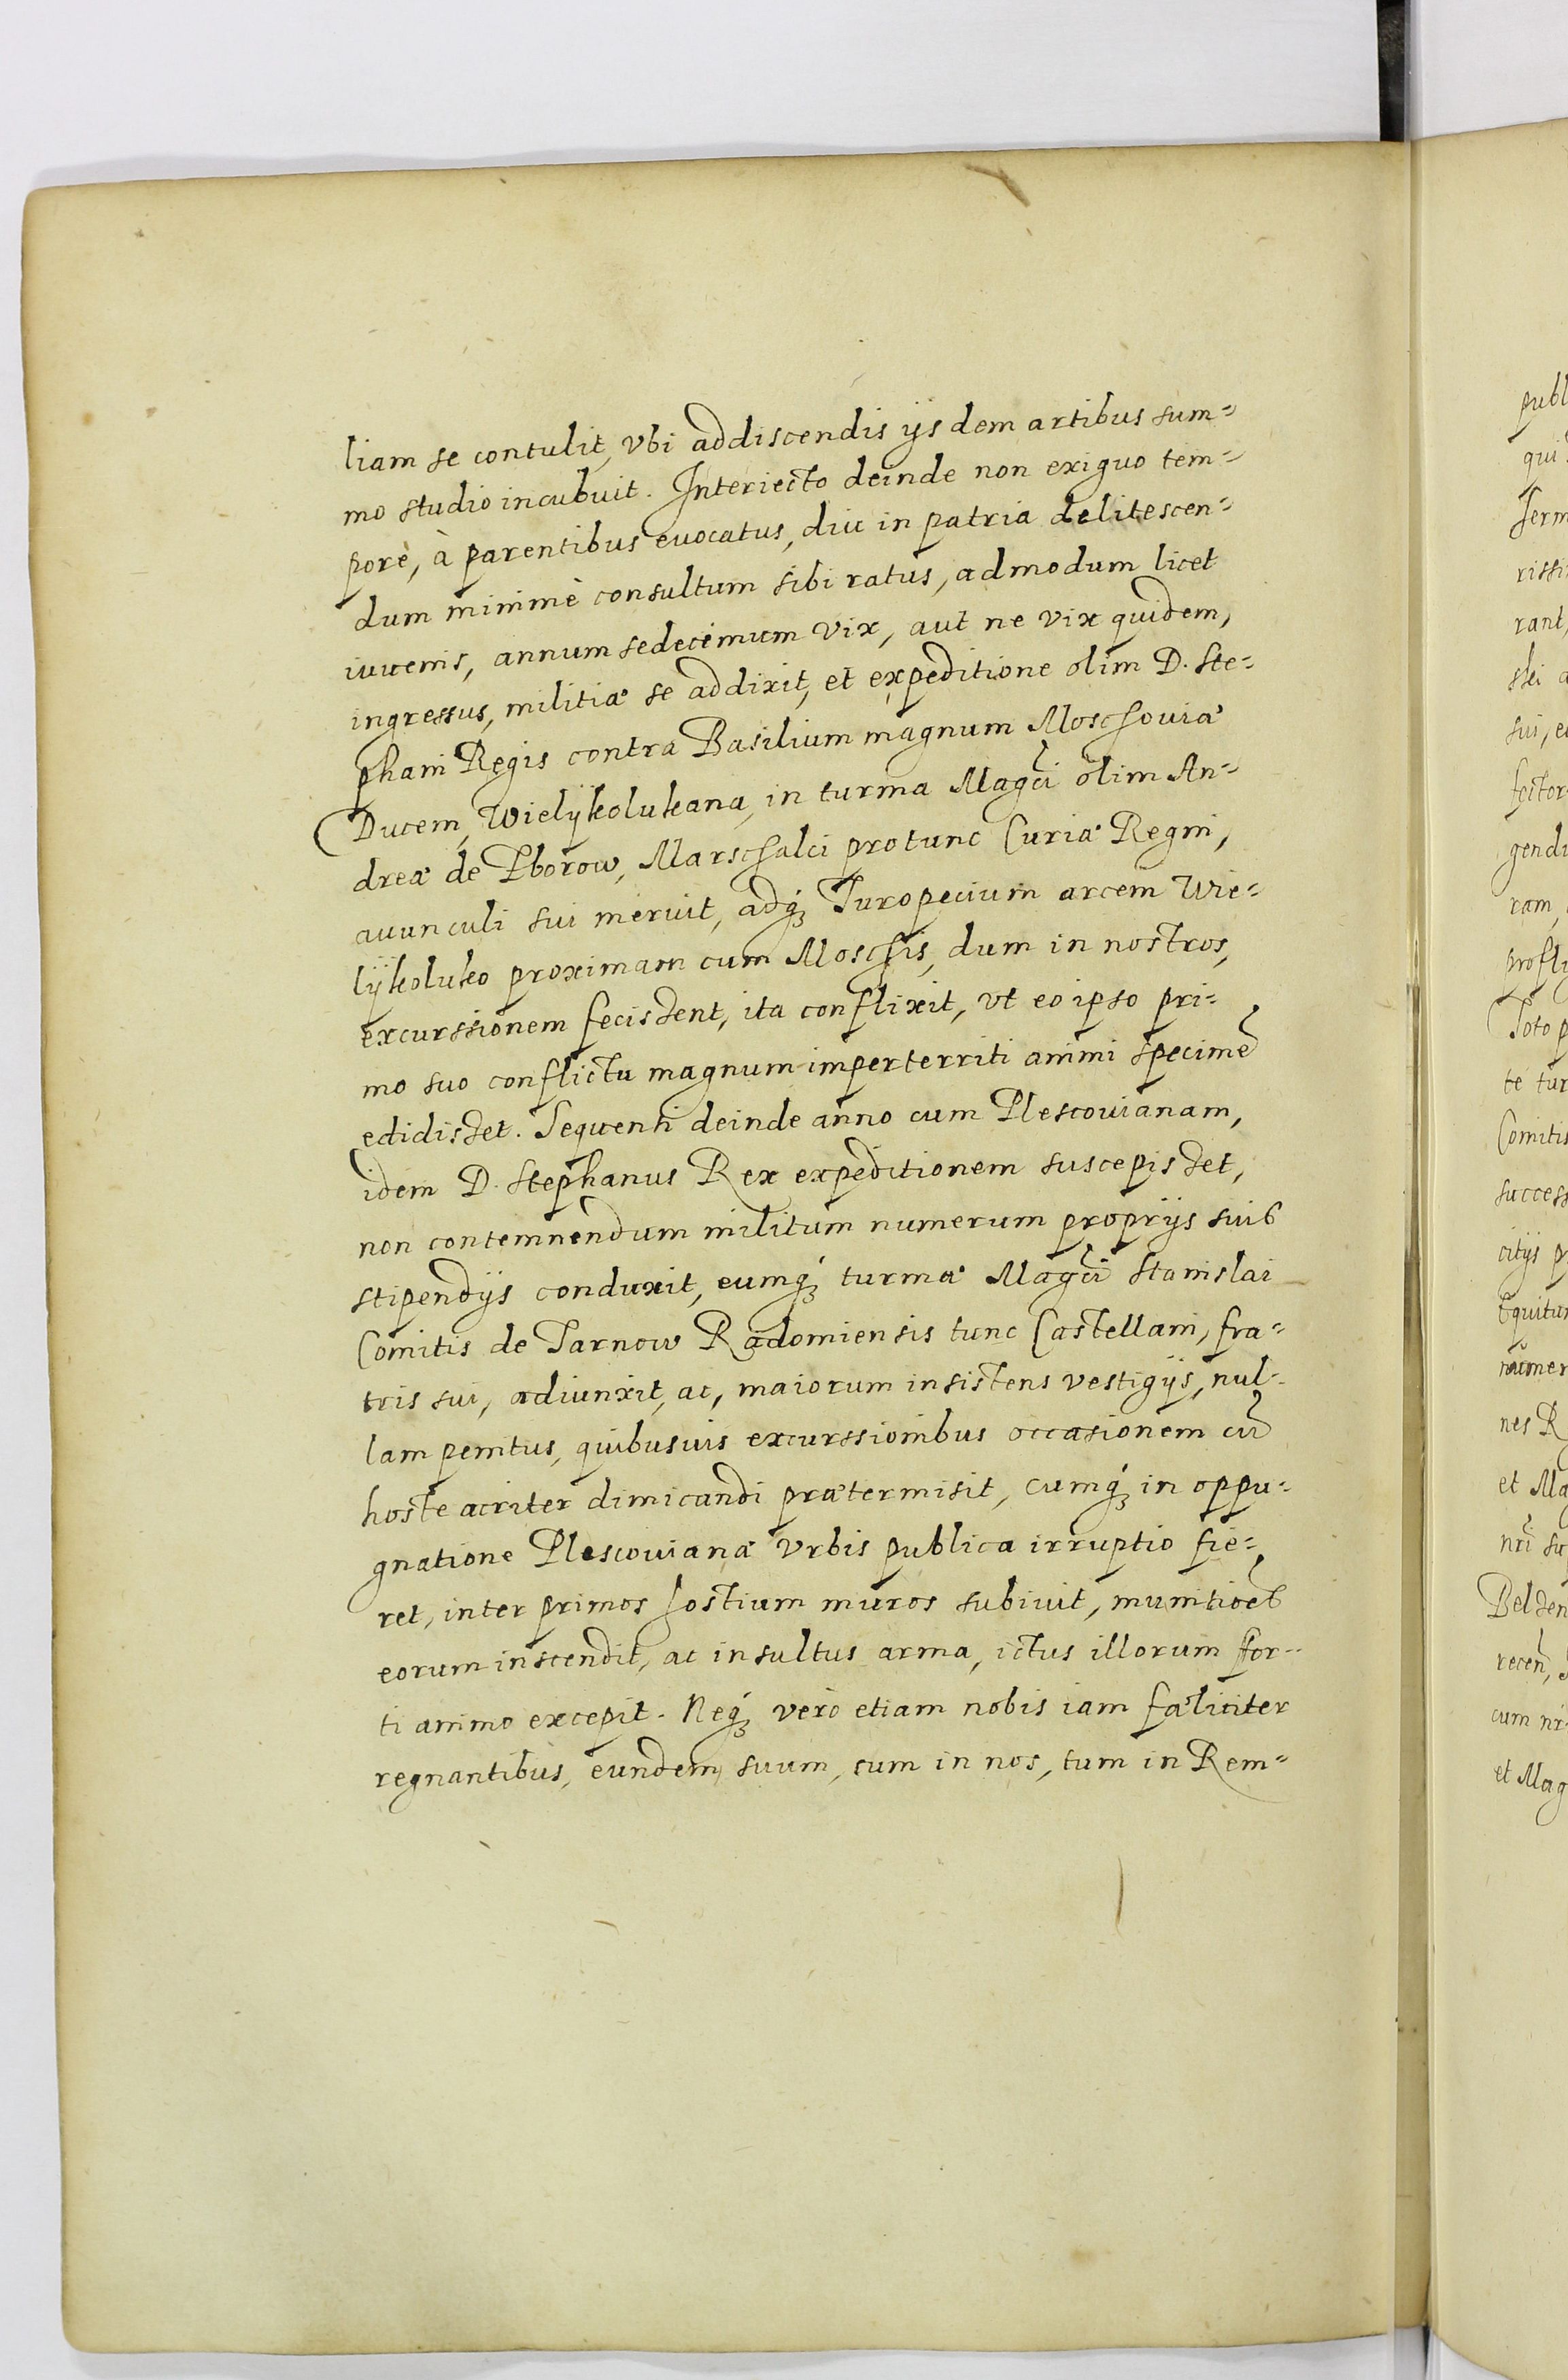 liam se contulit, vbi addiscendis ijsdem artibus sum=
mo studio incubuit. Interiecto deinde non exiguo tem=
pore, à parentibus euocatus, diu in patria delitescen=
dum minimè consultum sibi ratus, admodum licet
iuuenis, annum sedecimum vix, aut ne vix quidem,
ingressus, militiæ se addixit, et expeditione olim D. Ste=
phani Regis contra Basilium magnum Moschouiæ
Ducem, Wielijkolukana, in turma Magci olim An=
dreæ de Zborow, Marschalci protunc Curiæ Regni,
auunculi sui meruit, adq́ꝫ Turopecium arcem Wie=
lijkoluko proximam cum Moschis, dum in nostros,
excurssionem fecissent, ita conflixit, vt eo ipso pri=
mo suo conflictu magnum imperterriti animi specimē
edidisset. Sequenti deinde anno cum Plescouianam,
idem D. Stephanus Rex expeditionem suscepisset,
non contemnendum militum numerum proprijs suis
stipendijs conduxit, eumq́ꝫ turmæ Magci Stanislai
Comitis de Tarnow Radomiensis tunc Castellani, fra=
tris sui, adiunxit, ac, maiorum insistens vestigijs, nul-
lam penitus, quibusuis excurssionibus occasionem cū
hoste acriter dimicandi prætermisit, cumq́ꝫ in oppu=
gnatione Plescouianæ vrbis publica irruptio fie=
ret, inter primos hostium muros subiuit, munitioēs
eorum inscendit, ac insultus arma, ictus illorum for=
ti animo excepit. Neq́ꝫ vero etiam nobis iam fæliciter
regnantibus, eundem suum, cum in nos, tum in Rem=
publ
qui
rissi
rant,
sui, e
gendi
ram,
profli
Toto p
te tur
Comitis
success
citijs p
Equitu
numer
nes R
et Ma
nri su
Belzen
recen,
cum nr
et Mag